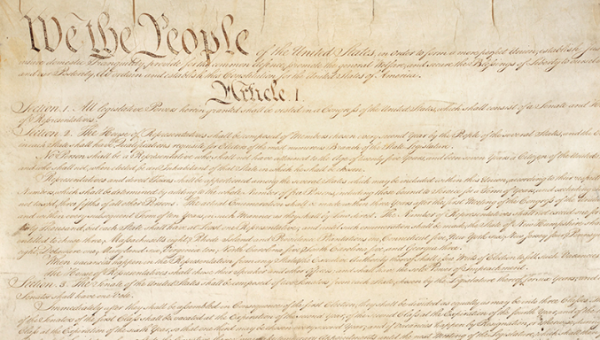 We the People of the United States, in Order to form a more perfect Union, establish
insure domestic Tranquility, provide for the common defence, promote the general Welfare, and secure the Blessings of Liberty to
and our Posterity, do ordain and establish this Constitution for the United States of America.
Article. I.
Section. 1. All legislative Powers herein granted shall be vested in a Congress of the United States, which shall consist of a Senate and
of Representatives.
Section. 2. The House of Representatives shall be composed of Members chosen every second Year by the People of the several States, and the
in each State shall have Qualifications requisite for Electors of the most numerous Branch of the State Legislature.
No Person shall be a Representative who shall not have attained to the Age of twenty five Years, and been seven Years a Citizen of the United
and who shall not, when elected, be an Inhabitant of that State in which he shall be chosen.
Representatives and direct Taxes shall be apportioned among the several States which may be included within this Union, according to their
Numbers, which shall be determined by adding to the whole Number of free Persons, including those bound to Service for a Term of Years, and excluding
not taxed, three fifths of all other Persons. The actual Enumeration shall be made within three Years after the first Meeting of the Congress of the
and within every subsequent Term of ten Years, in such Manner as they shall by Law direct. The Number of Representatives shall not exceed one for
thirty Thousand, but each State shall have at Least one Representative; and until such enumeration shall be made, the State of New Hampshire shall be
entitled to chuse three, Massachusetts eight, Rhode Island and Providence Plantations one, Connecticut five, New York six, New Jersey four,
eight, Delaware one, Maryland six, Virginia ten, North Carolina five, South Carolina five, and Georgia three.
When vacancies happen in the Representation from any State, the Executive Authority thereof shall issue Writs of Election to fill such Vacancies.
The House of Representatives shall chuse their Speaker and other Officers; and shall have the sole Power of Impeachment.
Section. 3. The Senate of the United States shall be composed of two Senators from each State, chosen by the Legislature thereof, for six Years; and
Senator shall have one Vote.
Immediately after they shall be assembled in Consequence of the first Election, they shall be divided as equally as may be into three Classes.
of the Senators of the first Class shall be vacated at the Expiration of the second Year, of the second Class at the Expiration of the fourth Year, and of the
Class at the Expiration of the sixth Year, so that one third may be chosen every second Year; and if Vacancies happen by Resignation, or otherwise,